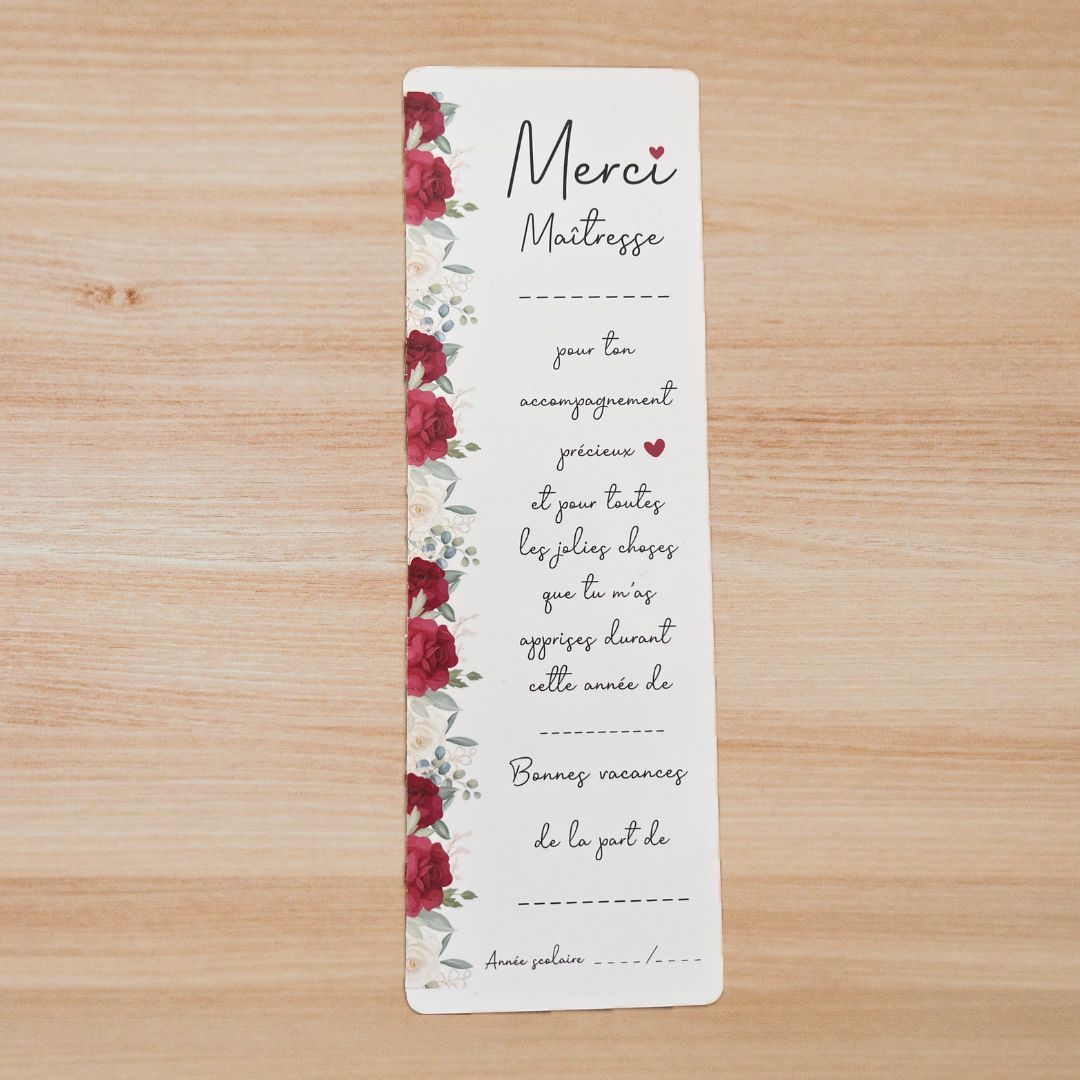 Merci
Maîtresse
_ _ _ _ _ _ _ _ _
pour ton
accompagnement
précieux
et pour toutes
les jolies choses
que tu m'as
apprises durant
cette année de
_ _ _ _ _ _ _ _ _ _ _
Bonnes vacances
de la part de
_ _ _ _ _ _ _ _ _ _ _
Année scolaire _ _ _ _ / _ _ _ _